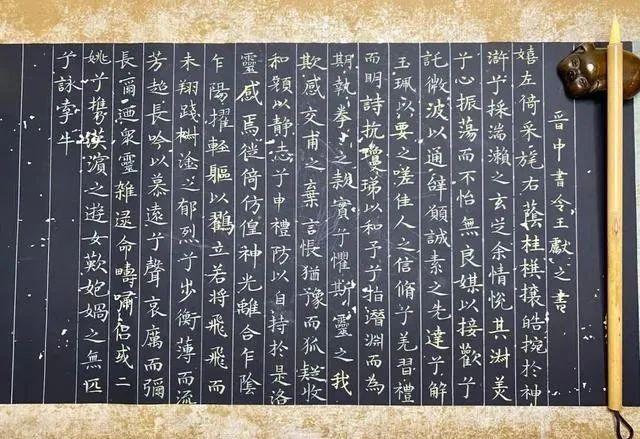 晉中書令王獻之書
嬉左倚采旄右蔭桂棋攘皓捥於神
滸兮採湍瀨之玄芝余情悅其淑美
兮心振蕩而不怡無良媒以接歡兮
託微波以通辭願誠素之先達兮解
玉珮以要之嗟佳人之信脩兮羌習禮
而明詩抗瓊珶以和予兮指潛淵而為
期執拳之款實兮懼斯靈之我
欺感交甫之棄言悵猶豫而狐疑收
和顏以静志兮申禮防以自持於是洛
靈感焉徙倚仿偟神光離合乍陰
乍陽擢輕軀以鶴立若將飛飛而
未翔踐椒塗之郁烈兮步衡薄而流
芳超長吟以慕遠兮聲哀厲而彌
長爾迺眾靈雜遝命疇嘯侶或二
姚兮携漢濱之遊女歎匏媧之無匹
兮詠牽牛